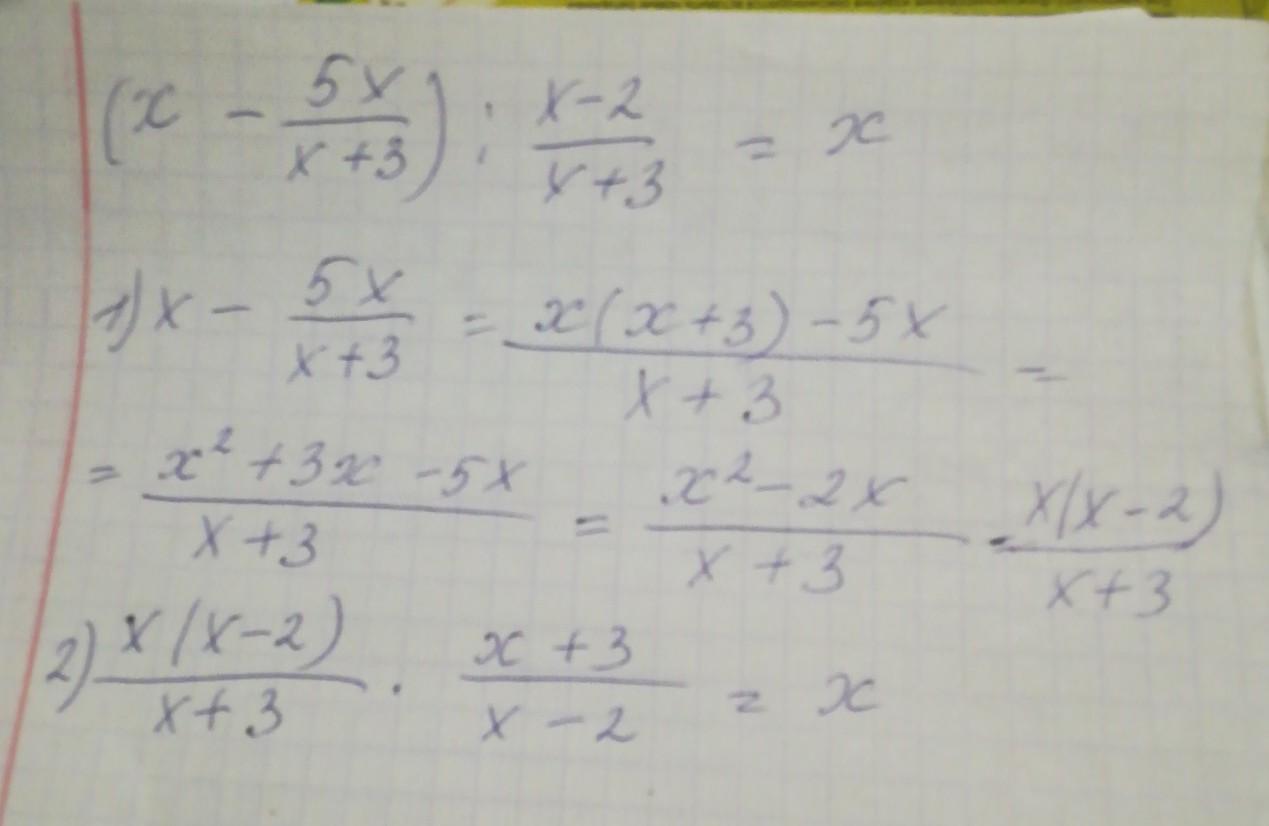 (x - 5x/(x+3)) : (x-2)/(x+3) = x
1) x - 5x/(x+3) = (x(x+3) - 5x)/(x+3) =
= (x² + 3x - 5x)/(x+3) = (x² - 2x)/(x+3) = x(x-2)/(x+3)
2) x(x-2)/(x+3) · (x+3)/(x-2) = x